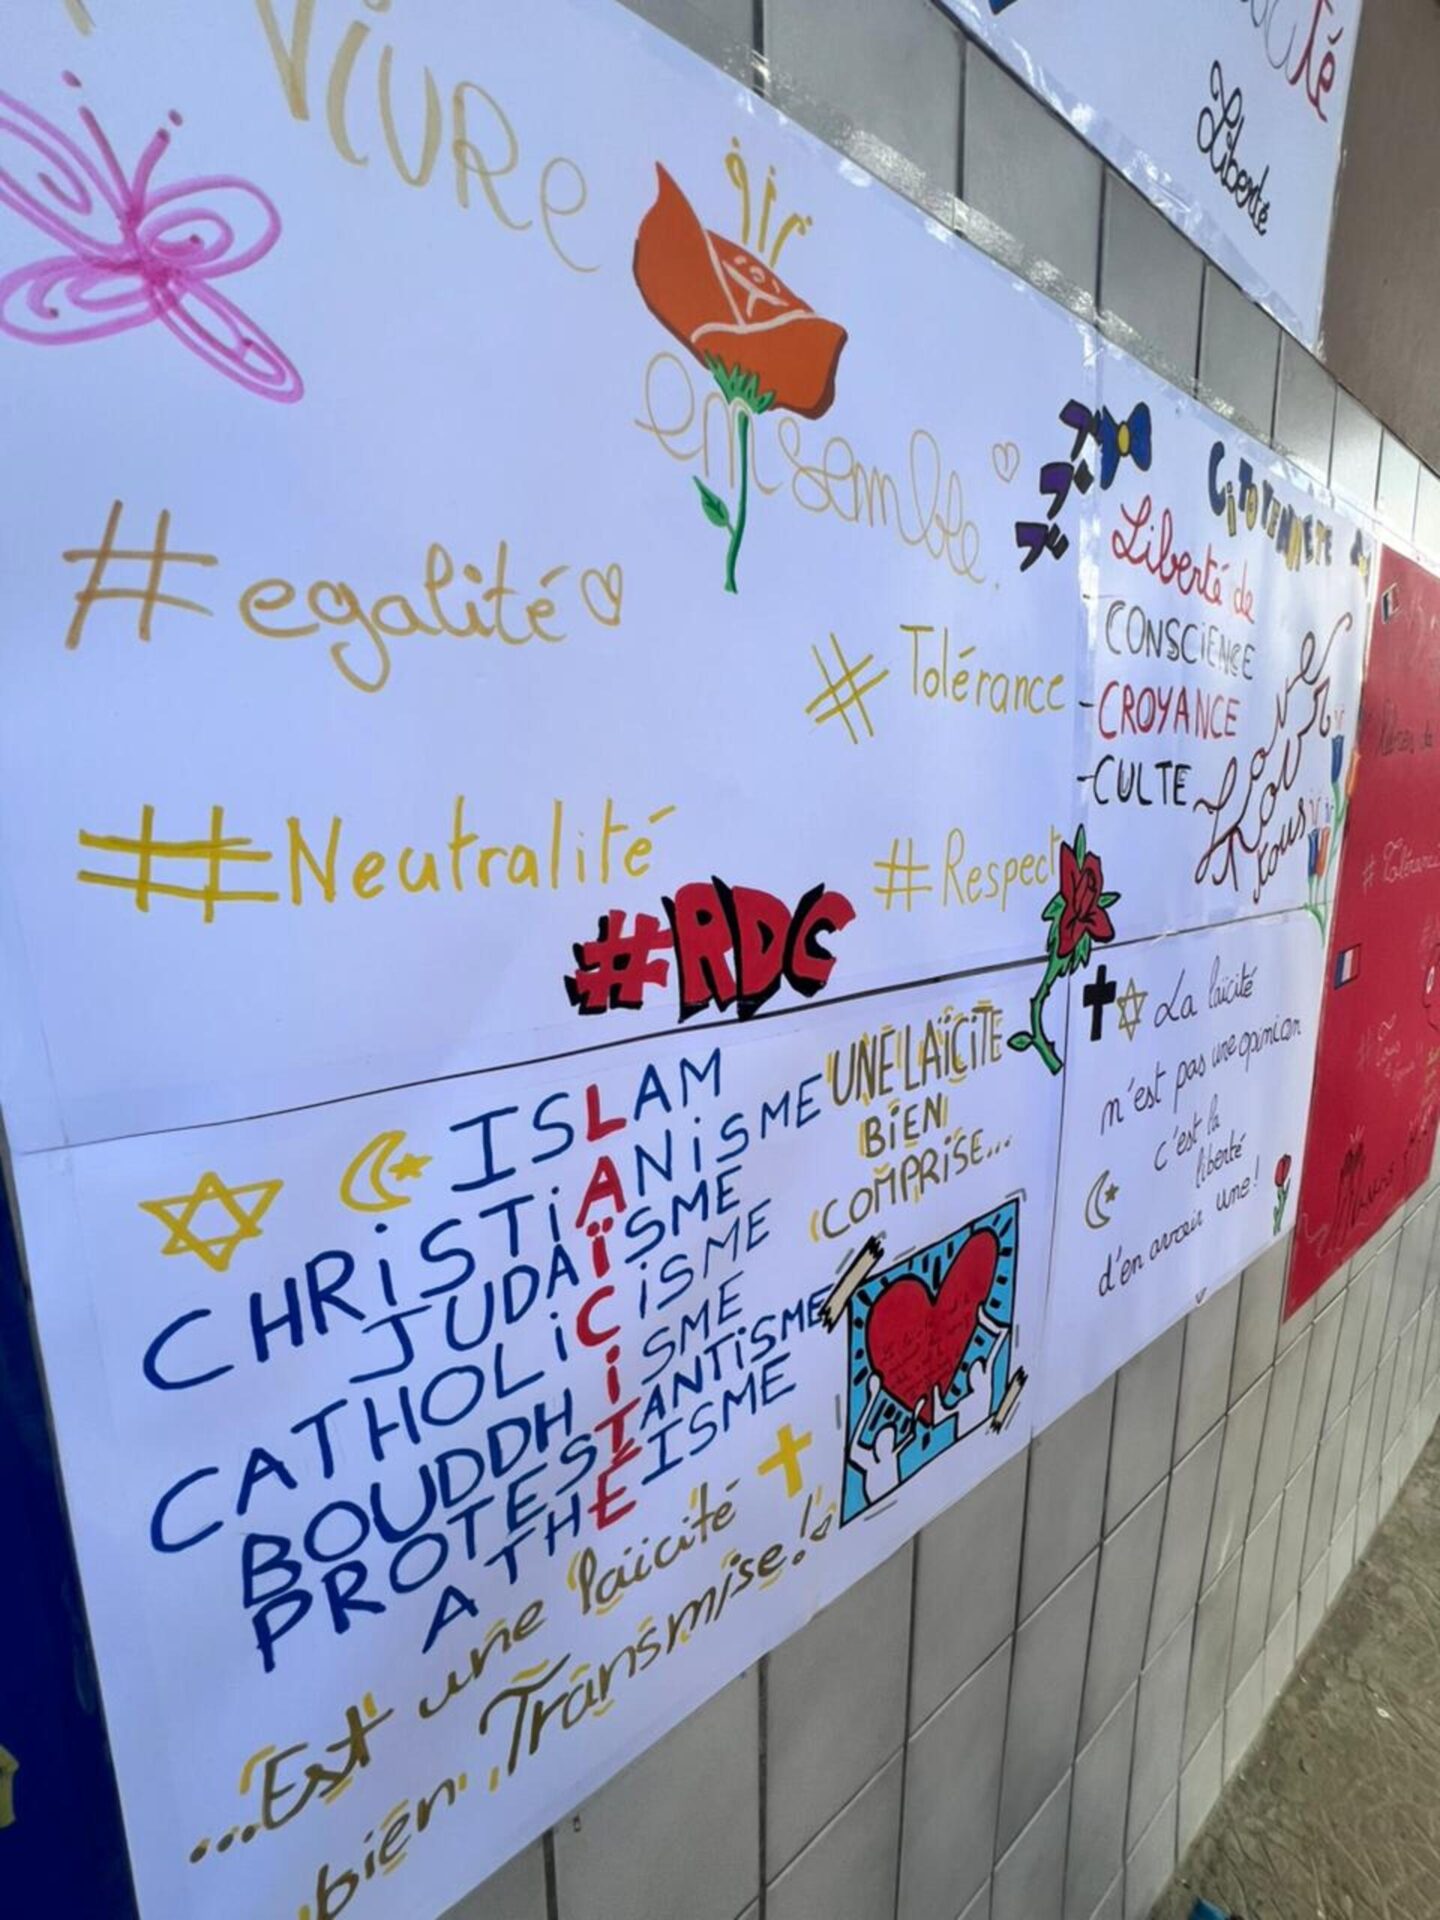 Vivre
ensemble.
#egalité
#Tolérance
#Neutralité
#Respect
#RDC
ISLAM
CHRISTIANISME
JUDAÏSME
CATHOLICISME
BOUDDHISME
PROTESTANTISME
ATHEISME
UNE LAÏCITE
BIEN
COMPRISE...
...Est une laïcité
bien Transmise!
Liberté
Liberté de
CONSCIENCE
-CROYANCE
-CULTE
tous
La laïcité
n'est pas une opinion
c'est la
liberté
d'en avoir une!